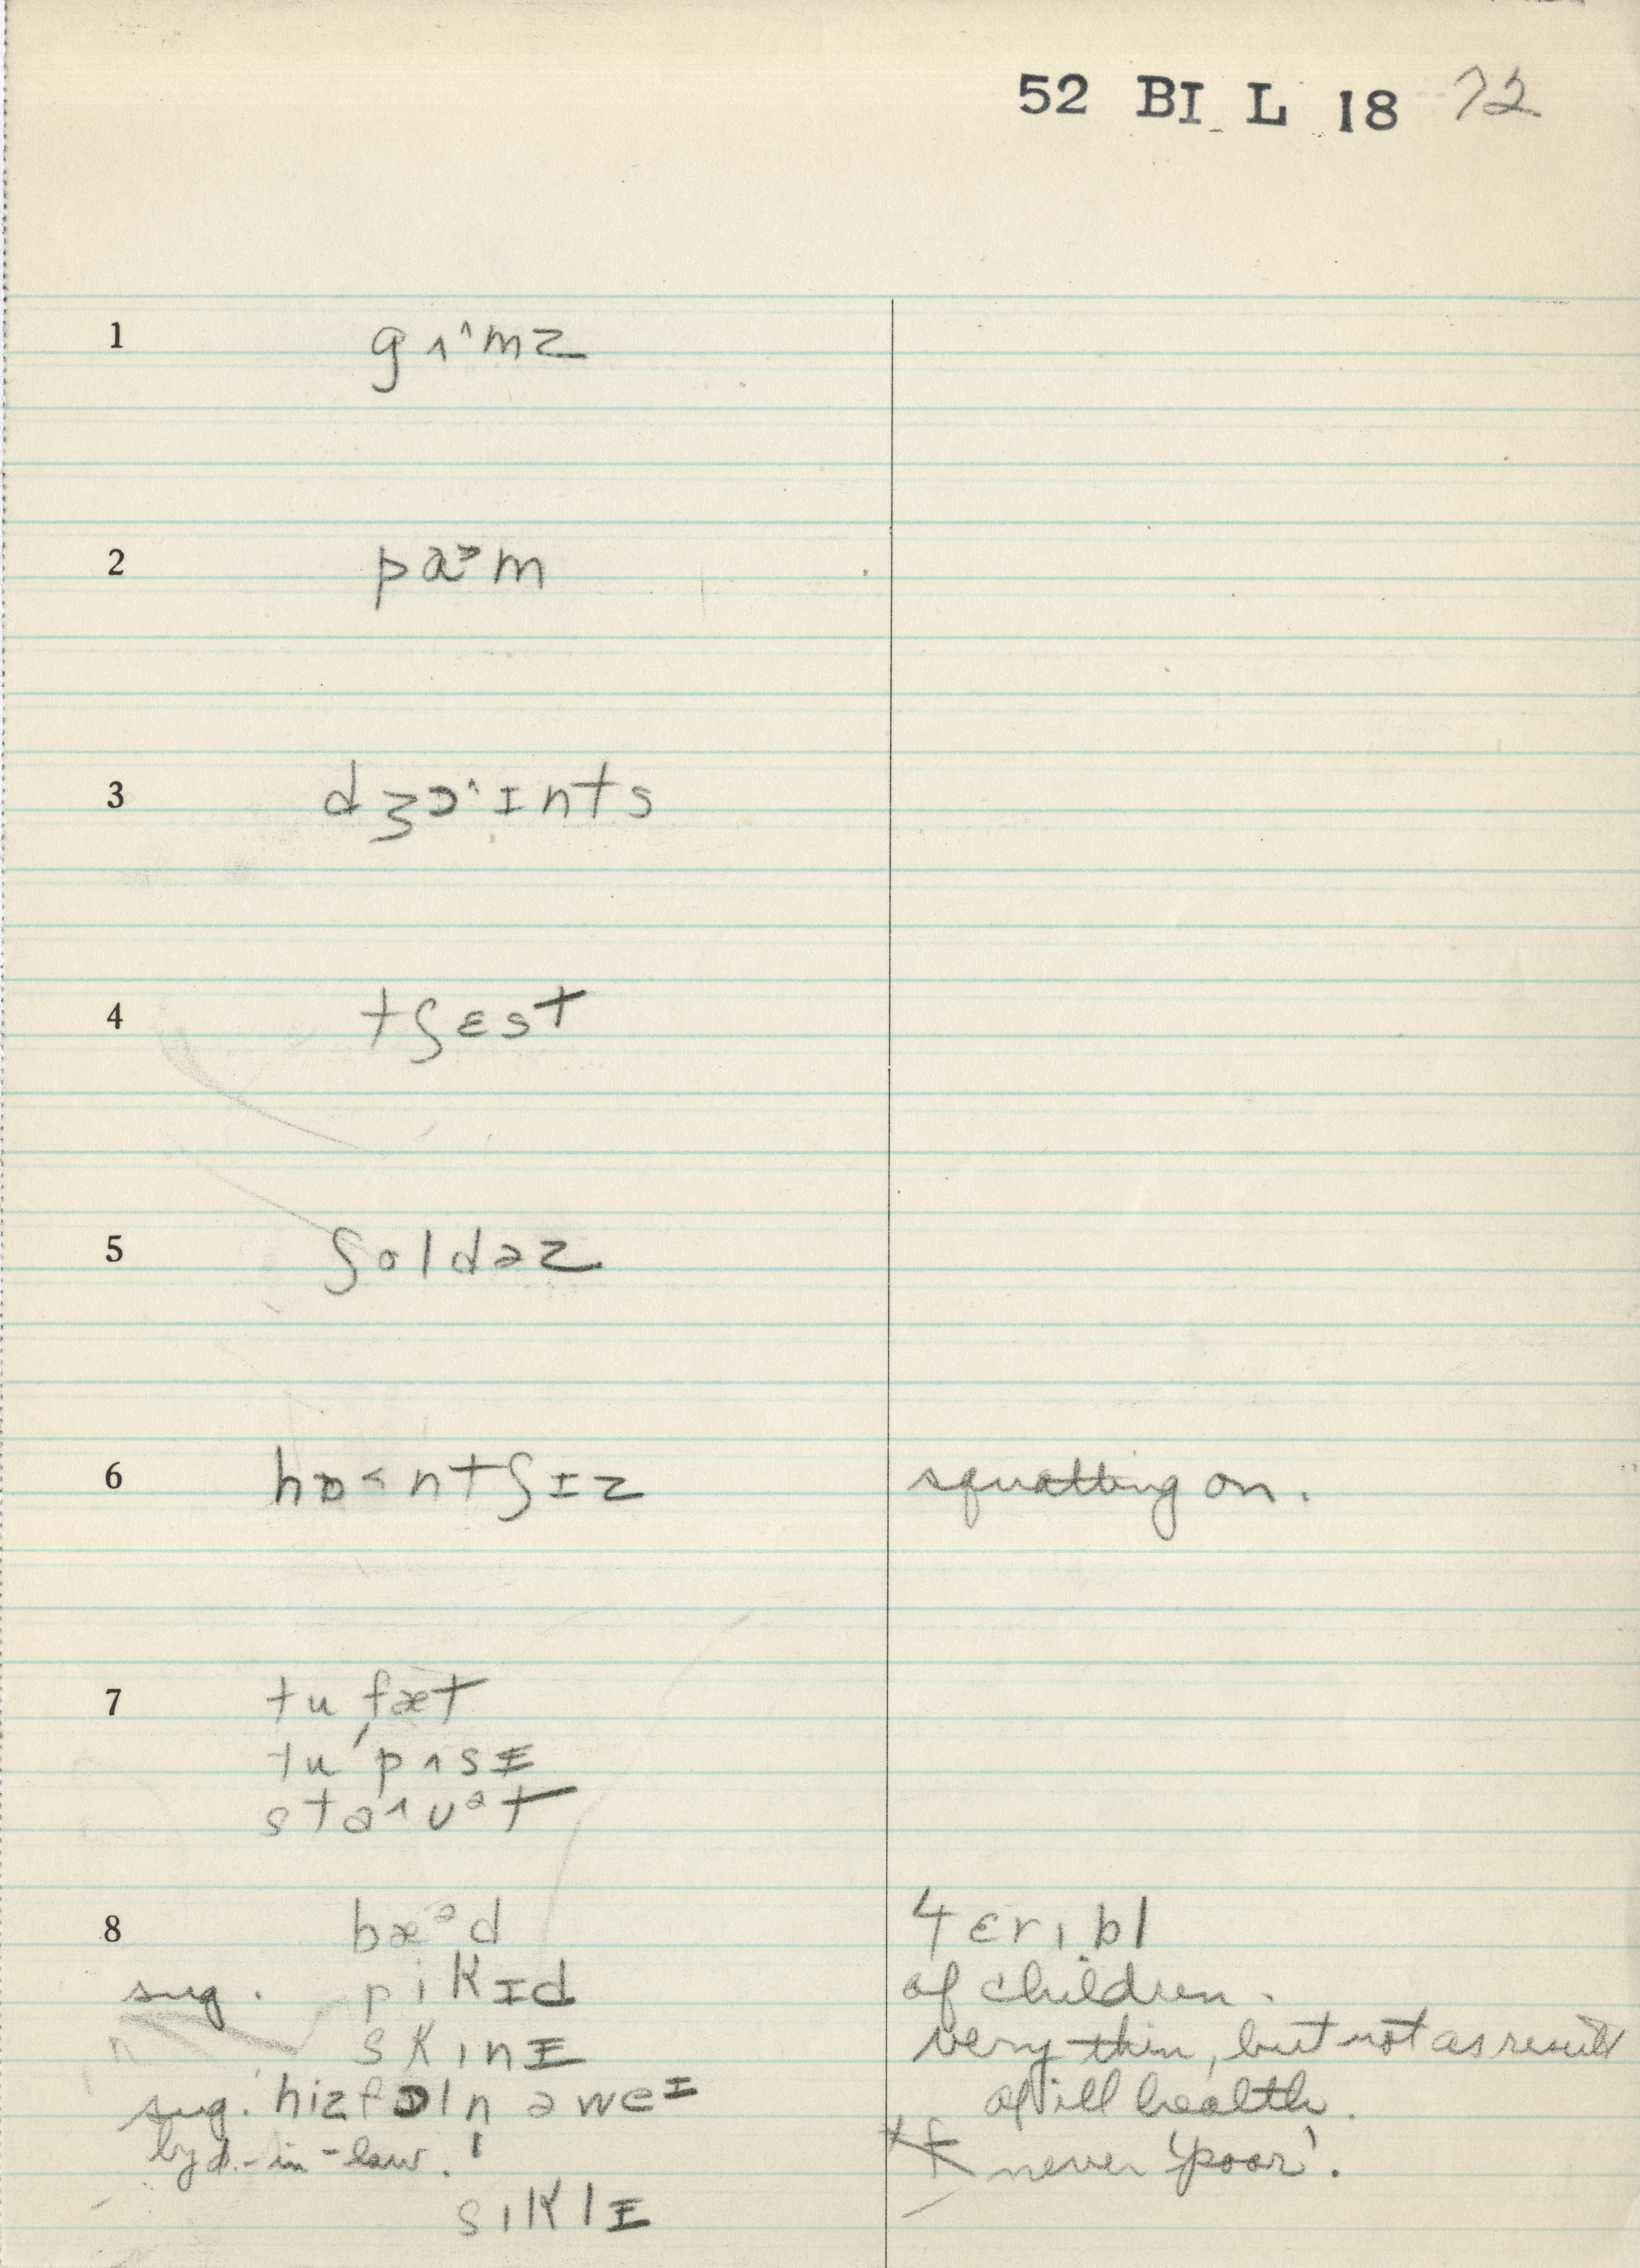 52 BI L 18 72
1 gʌ^mz
2 pɑɔm
3 dʒɔ^ɪnts
4 tʃɛst
5 ʃoldəz
6 hɒ˂ntʃɪz squatting on.
7 tu fæt
tu 'pʌsɪ
stɑ^ʊət
8 bæəd tɛrɪbl
sug. pikɪd of children.
skɪnɪ very thin, but not as result
sug. hizfɔln əweɪ of ill health.
by d.-in-law. never 'poor'.
sɪklɪ